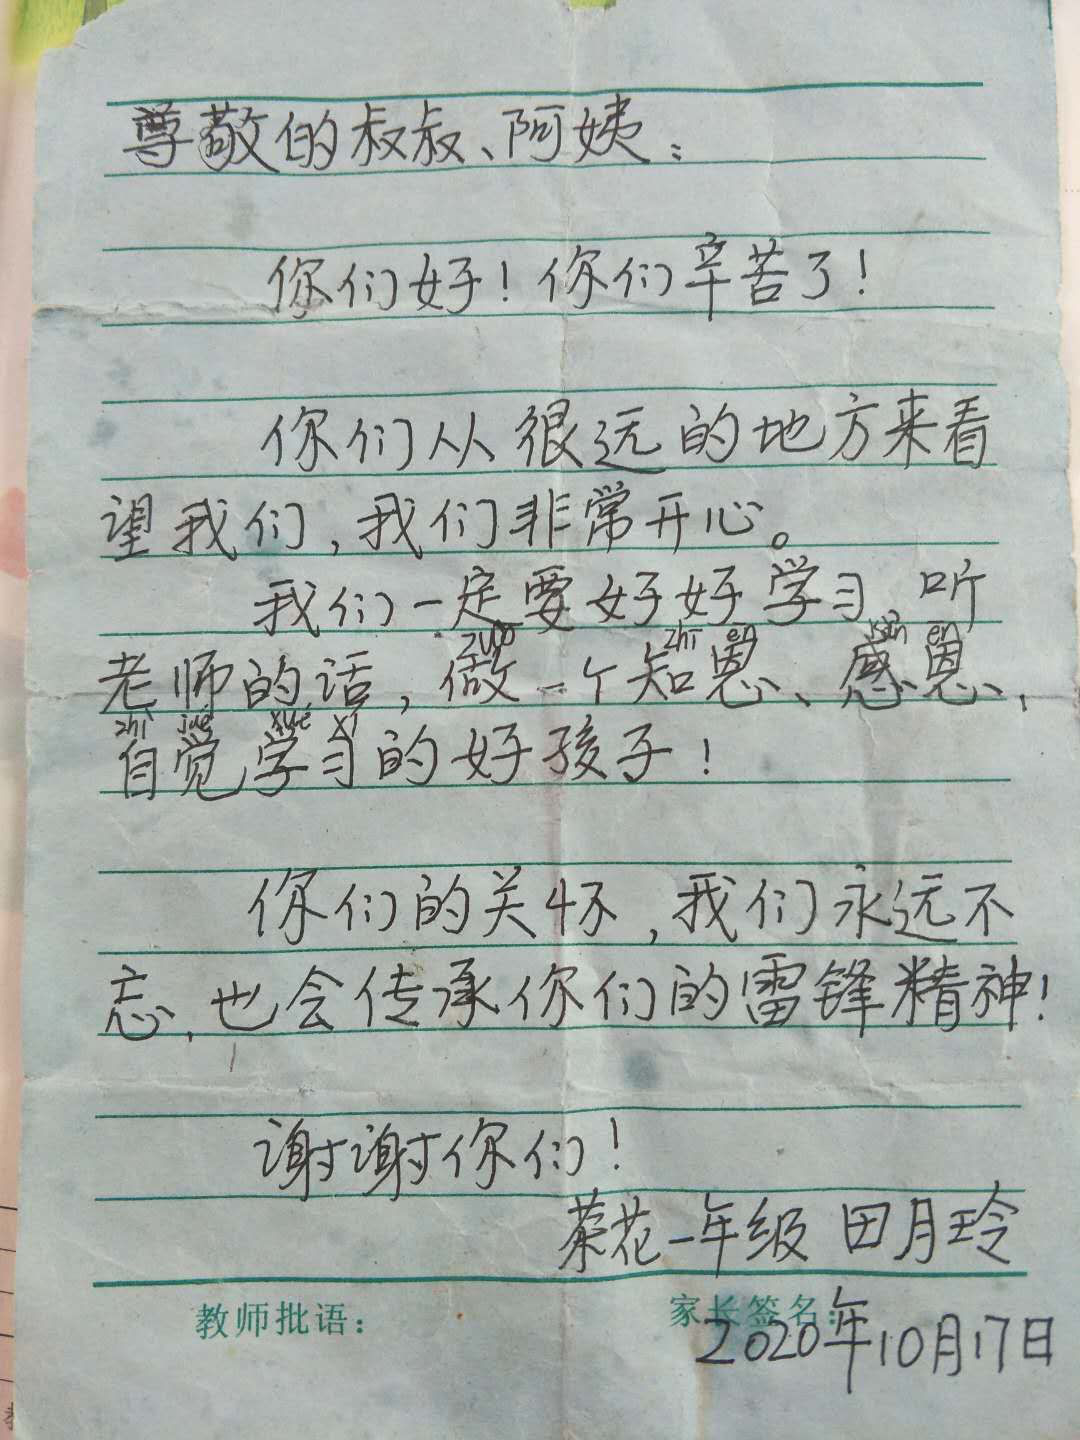 尊敬的叔叔、阿姨：
你们好！你们辛苦了！
你们从很远的地方来看
望我们，我们非常开心。
我们一定要好好学习，听
zuò zhī ēn gǎn ēn
老师的话，做一个知恩、感恩、
zhì jué xué xí
自觉学习的好孩子！
你们的关怀，我们永远不
忘，也会传承你们的雷锋精神！
谢谢你们！
菜花一年级 田月玲
教师批语： 家长签名：
2020年10月17日